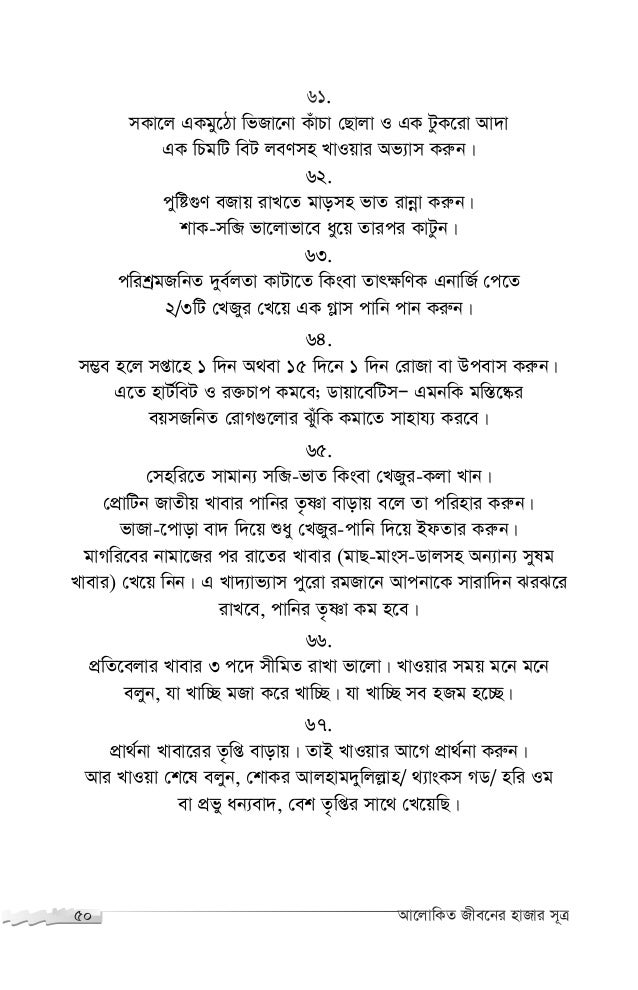 ৬১.
সকালে একমুঠো ভিজানো কাঁচা ছোলা ও এক টুকরো আদা
এক চিমটি বিট লবণসহ খাওয়ার অভ্যাস করুন।
৬২.
পুষ্টিগুণ বজায় রাখতে মাড়সহ ভাত রান্না করুন।
শাক-সব্জি ভালোভাবে ধুয়ে তারপর কাটুন।
৬৩.
পরিশ্রমজনিত দুর্বলতা কাটাতে কিংবা তাৎক্ষণিক এনার্জি পেতে
২/৩টি খেজুর খেয়ে এক গ্লাস পানি পান করুন।
৬৪.
সম্ভব হলে সপ্তাহে ১ দিন অথবা ১৫ দিনে ১ দিন রোজা বা উপবাস করুন।
এতে হার্টবিট ও রক্তচাপ কমবে; ডায়াবেটিস– এমনকি মস্তিষ্কের
বয়সজনিত রোগগুলোর ঝুঁকি কমাতে সাহায্য করবে।
৬৫.
সেহরিতে সামান্য সব্জি-ভাত কিংবা খেজুর-কলা খান।
প্রোটিন জাতীয় খাবার পানির তৃষ্ণা বাড়ায় বলে তা পরিহার করুন।
ভাজা-পোড়া বাদ দিয়ে শুধু খেজুর-পানি দিয়ে ইফতার করুন।
মাগরিবের নামাজের পর রাতের খাবার (মাছ-মাংস-ডালসহ অন্যান্য সুষম
খাবার) খেয়ে নিন। এ খাদ্যাভ্যাস পুরো রমজানে আপনাকে সারাদিন ঝরঝরে
রাখবে, পানির তৃষ্ণা কম হবে।
৬৬.
প্রতিবেলার খাবার ৩ পদে সীমিত রাখা ভালো। খাওয়ার সময় মনে মনে
বলুন, যা খাচ্ছি মজা করে খাচ্ছি। যা খাচ্ছি সব হজম হচ্ছে।
৬৭.
প্রার্থনা খাবারের তৃপ্তি বাড়ায়। তাই খাওয়ার আগে প্রার্থনা করুন।
আর খাওয়া শেষে বলুন, শোকর আলহামদুলিল্লাহ/ থ্যাংকস গড/ হরি ওম
বা প্রভু ধন্যবাদ, বেশ তৃপ্তির সাথে খেয়েছি।
৫০
আলোকিত জীবনের হাজার সূত্র